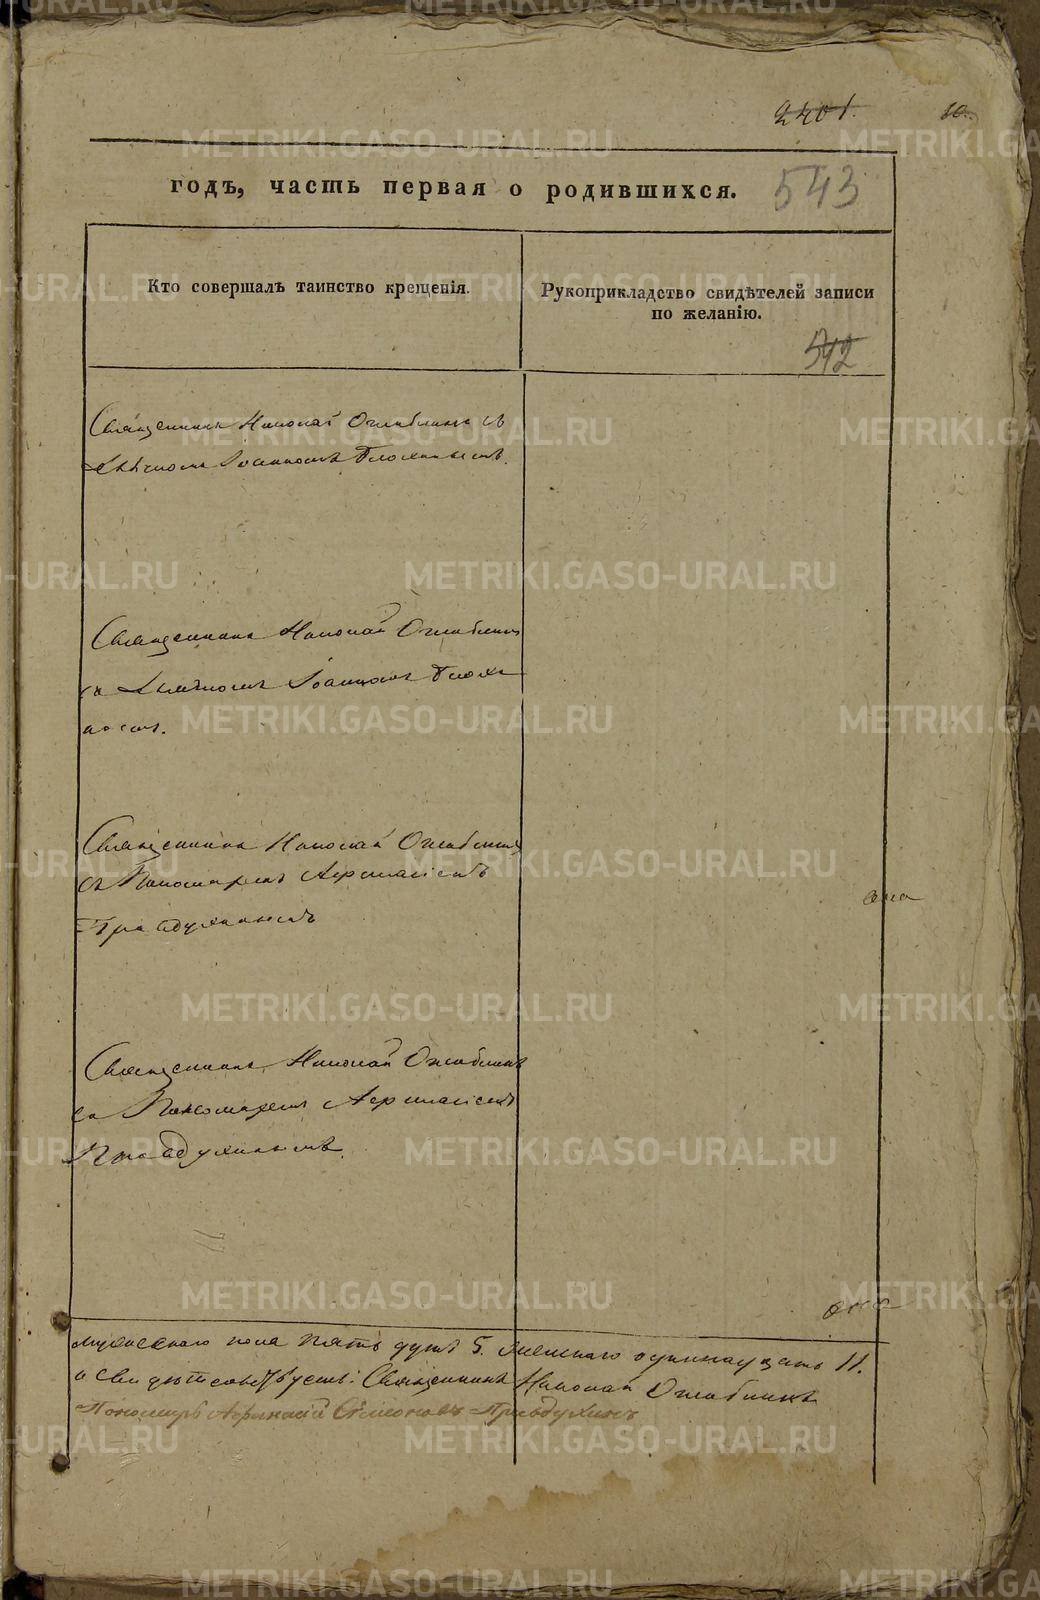 2401.
10.
годъ, часть первая о родившихся.
543
Кто совершалъ таинство крещенія.
Рукоприкладство свидѣтелей записи
по желанію.
542
Священникъ Николай Оглоблинъ съ
Дьячкомъ Іоанномъ
Священникъ Николай Оглоблинъ
съ Дьячкомъ Іоанномъ
Священникъ Николай Оглоблинъ
съ Пономаремъ Афанасіемъ
Правдухинымъ
Священникъ Николай Оглоблинъ
съ Пономаремъ Афанасіемъ
Правдухинымъ.
мужескаго пола пять душъ 5. женскаго одиннадцать 11.
Священникъ Николай Оглоблинъ
Пономарь Афанасій Симоновъ Правдухинъ
METRIKI.GASO-URAL.RU